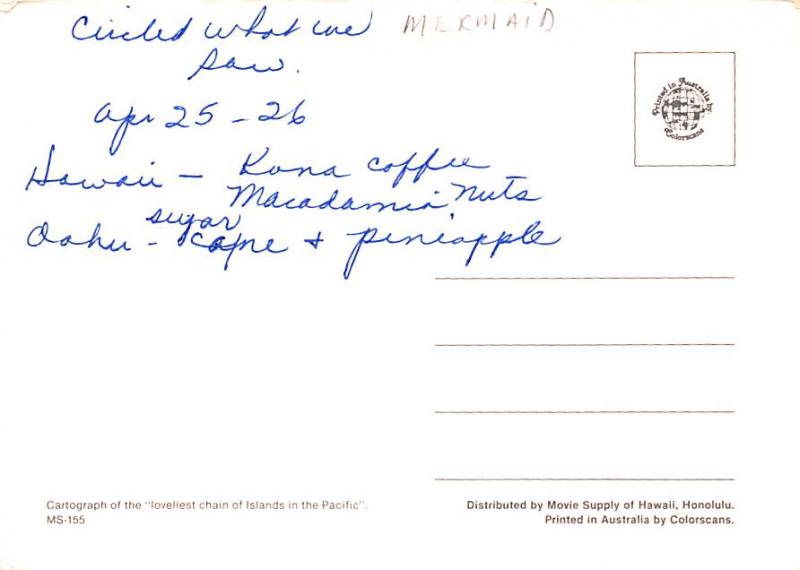 Circled what we MERMAID
saw.
Apr 25-26
Hawaii - Kona coffee
Macadamia nuts
sugar
Oahu - cane + pineapple
Printed in Australia by
Colorscans
Cartograph of the "loveliest chain of Islands in the Pacific".
MS-155
Distributed by Movie Supply of Hawaii, Honolulu.
Printed in Australia by Colorscans.